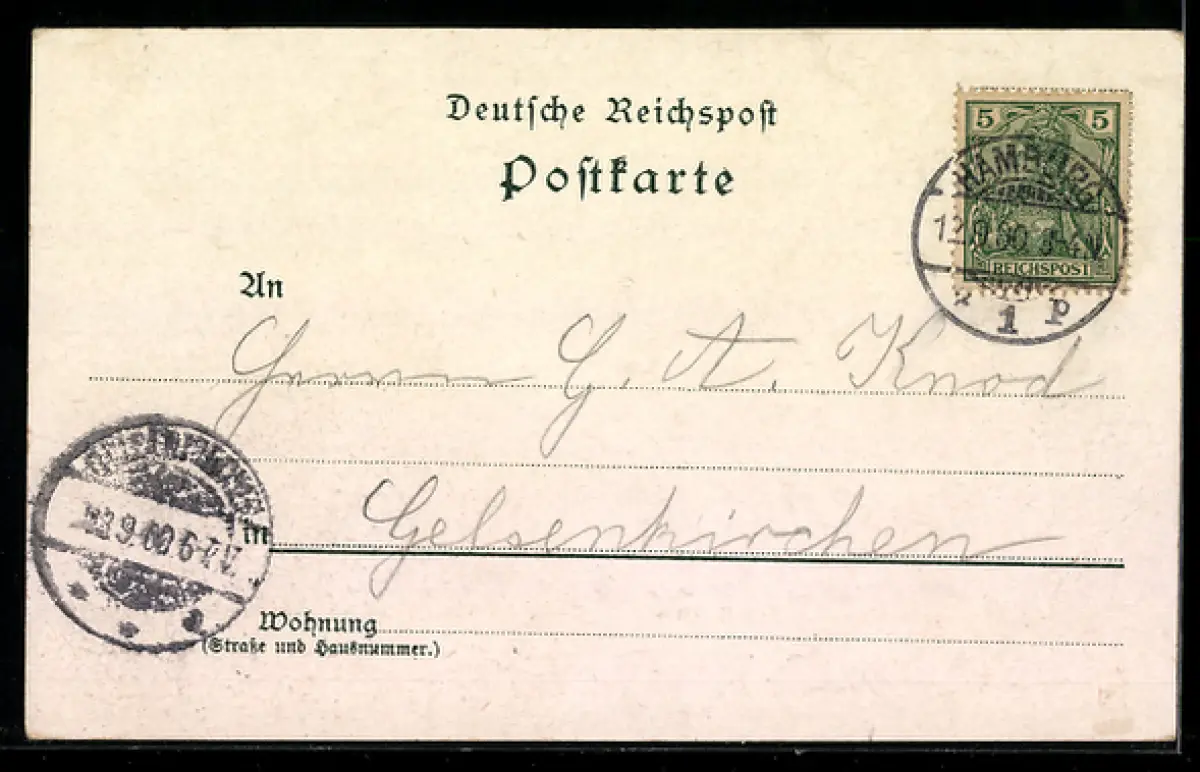 Deutsche Reichspost
Postkarte
5 5
REICHSPOST
HAMBURG
12.9.00.
1 p
An
Herrn G. A. Knod
Gelsenkirchen
9.00.6-7.V.
in
Wohnung
(Straße und Hausnummer.)